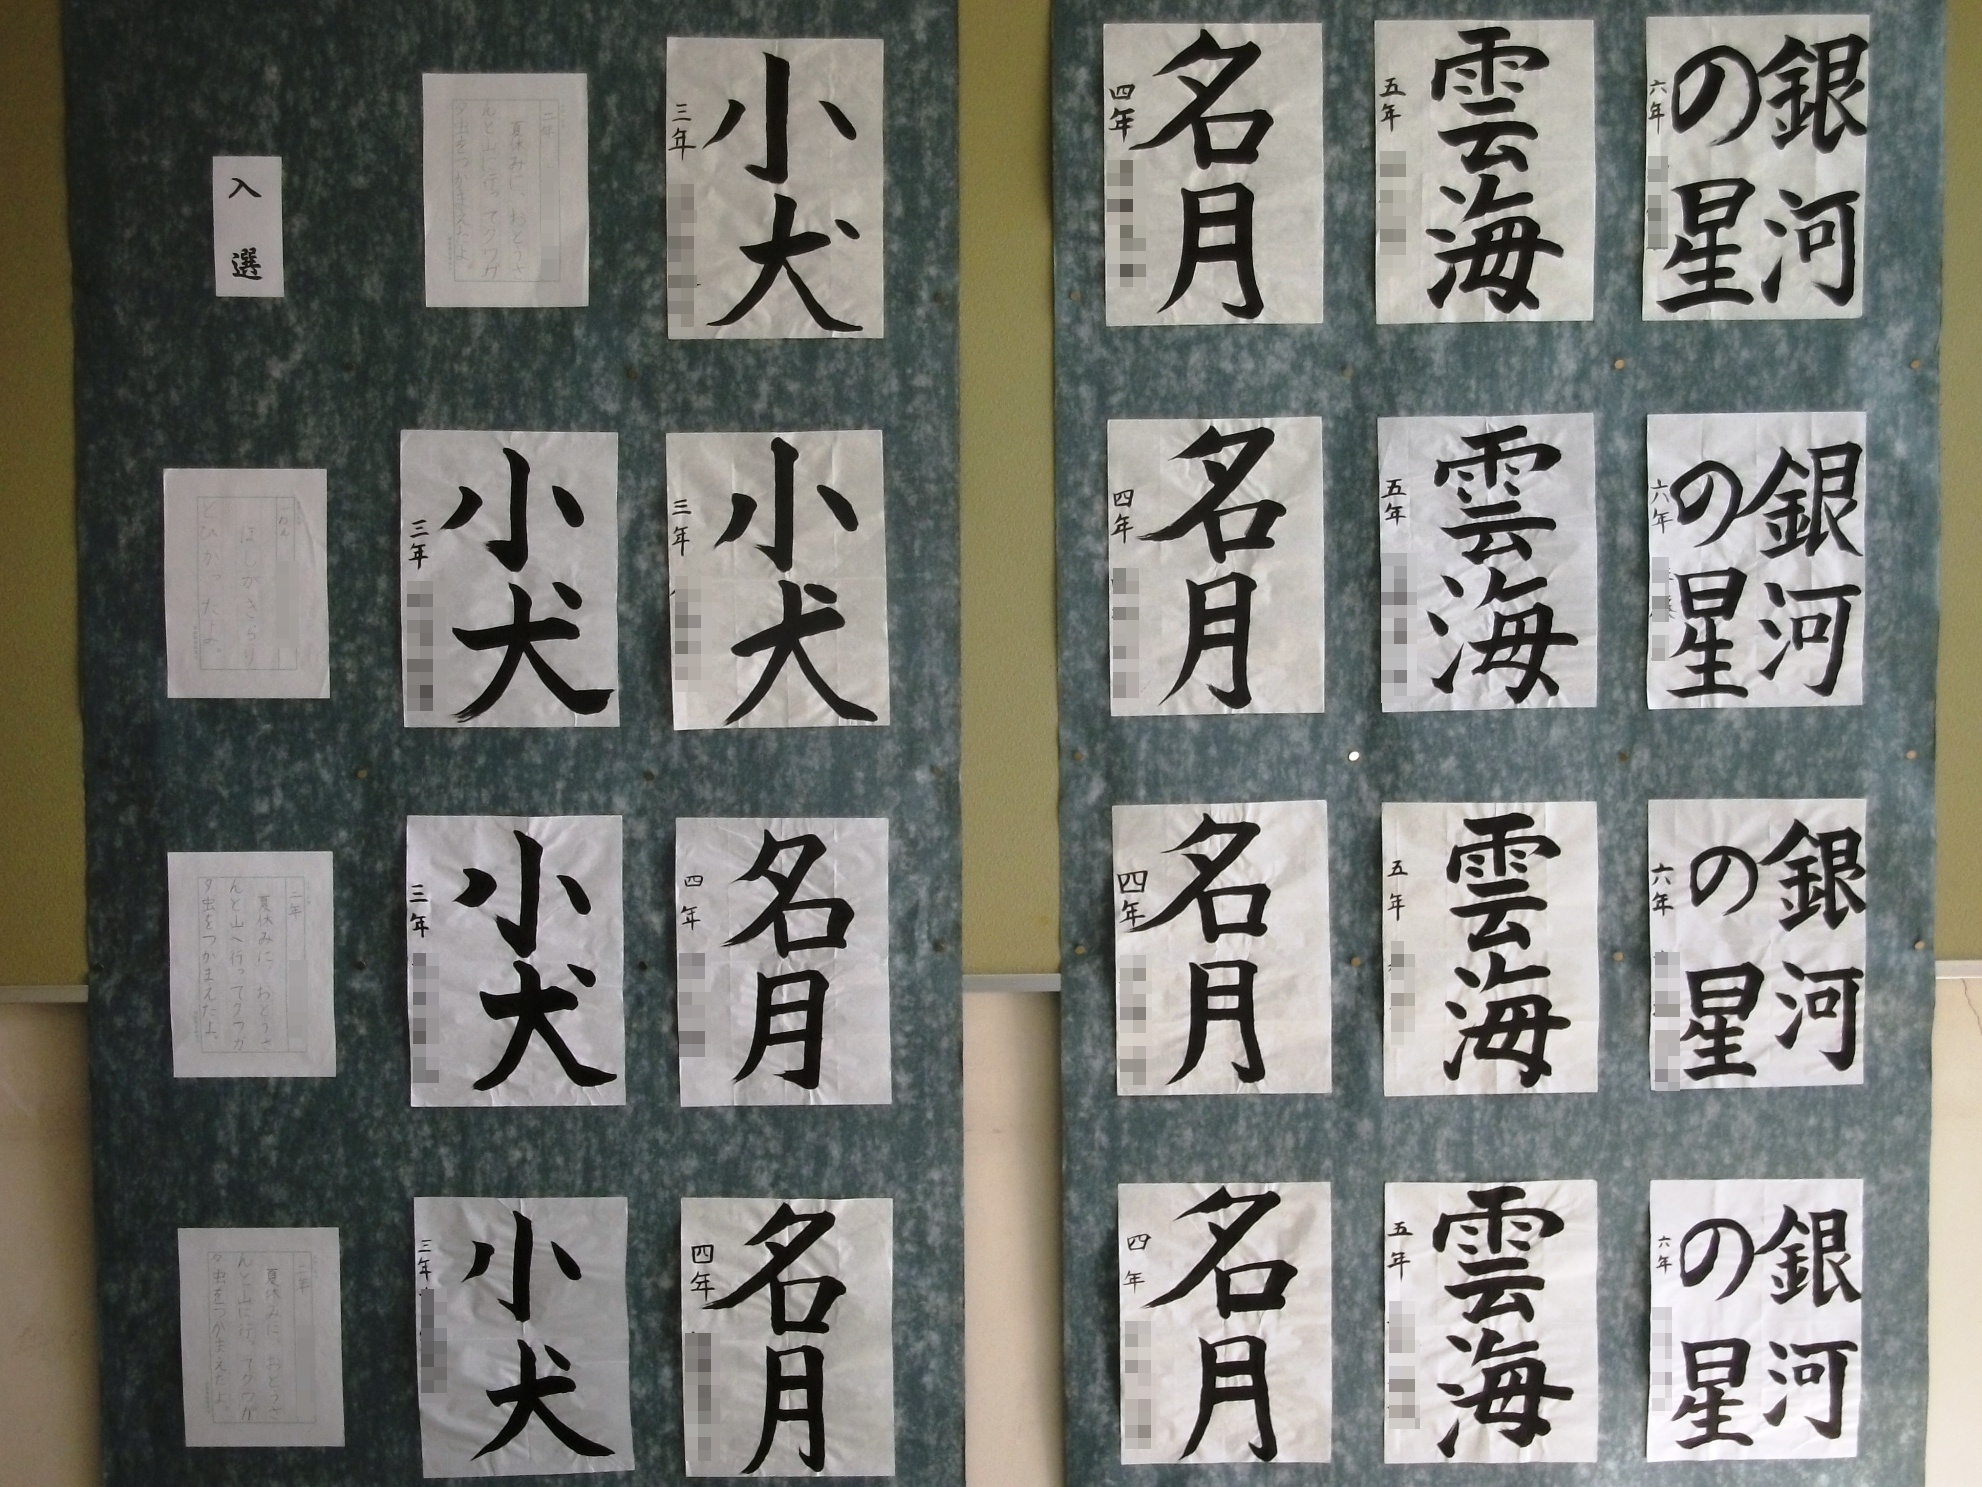 銀河
の星
六年
銀河
の星
六年
銀河
の星
六年
銀河
の星
六年
雲海
五年
雲海
五年
雲海
五年
雲海
五年
名月
四年
名月
四年
名月
四年
名月
四年
小犬
三年
小犬
三年
名月
四年
名月
四年
二年
夏休みに、おとうさ
んと山に行ってクワガ
タ虫をつかまえたよ。
小犬
三年
小犬
三年
小犬
三年
入選
一ねん
ほしがきらり
とひかったよ。
二年
夏休みに、おとうさ
んと山へ行ってクワガ
タ虫をつかまえたよ。
二年
夏休みに、おとうさ
んと山に行ってクワガ
タ虫をつかまえたよ。